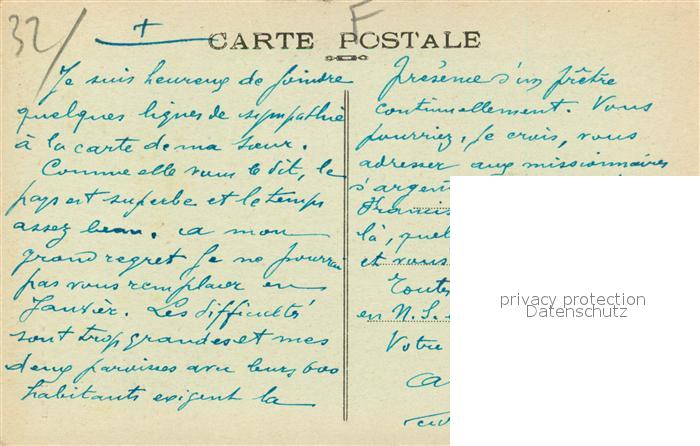 32/
F
CARTE POSTALE
Je suis heureux de joindre
quelques lignes de sympathie
à la carte de ma sœur.
Comme elle vous le dit, le
pays est superbe et le temps
assez beau. à mon
grand regret je ne pourrai
pas vous remplacer en
Janvier. Les difficultés
sont trop grandes et mes
deux paroisses avec leurs 600
habitants exigent la
présence d'un prêtre
continuellement. Vous
pourriez, je crois, vous
adresser aux missionnaires
d'argent
Francis
là, quel
et vous
Toutes
en N.S.
Votre
privacy protection
Datenschutz